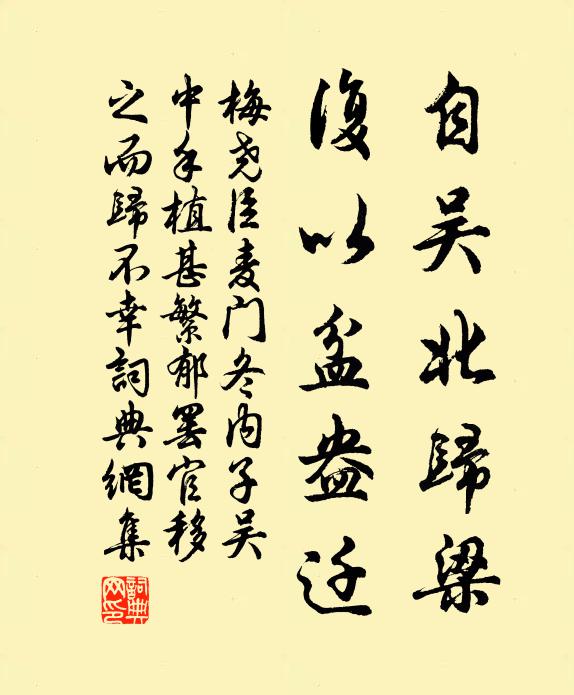 自吴北歸梁
復以盆盎迁
梅尧臣麦门冬内子吴
中手植甚繁郁罢官移
之而歸不幸詞典網集
詞典网印